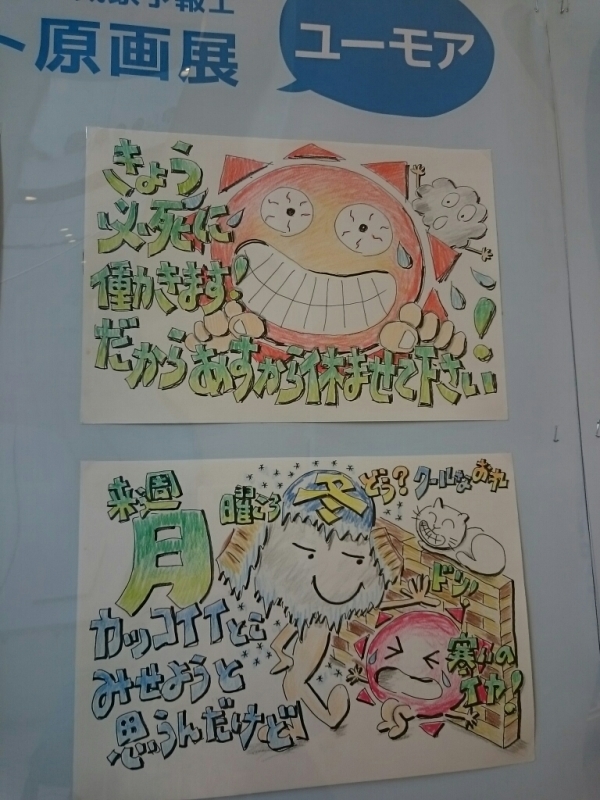 予報士
ト原画展
ユーモア
きょう
必死に
働かきます!
だからあすから休ませて下さい!
来週
月曜ころ
冬
どう? クールなおれ
カッコイイとこ
みせようと
思うんだけど
ドン!
寒いの
イヤ!